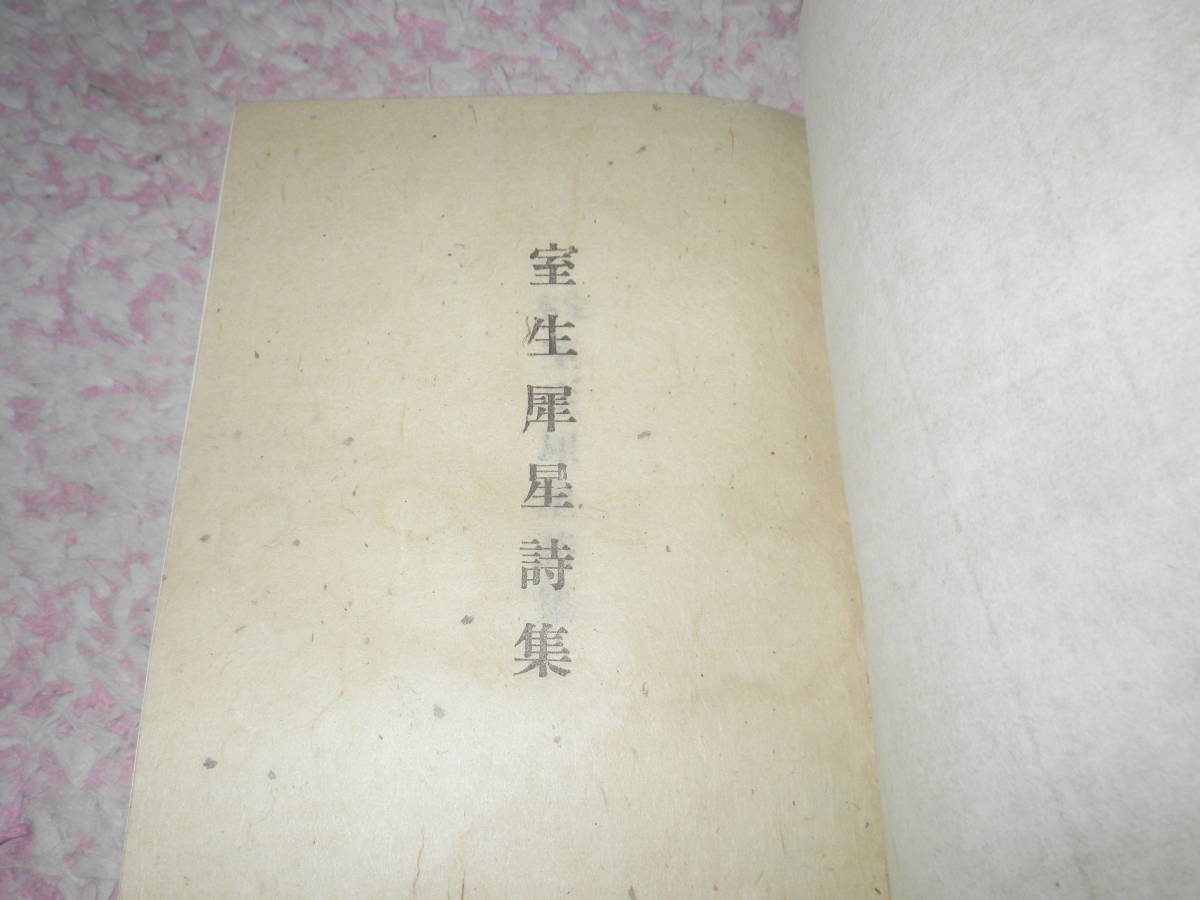 室生犀星詩集